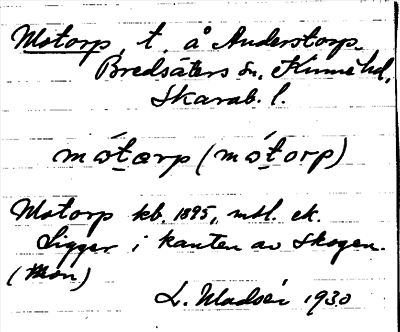 Motorp, t. å Anderstorp,
Bredsäters sn, Kinne hd,
Skarab. l.
mó̱tærp (mó̱torp)
Motorp kb. 1895, mtl. ek.
Ligger i kanten av skogen.
(Mon.)
L. Modsér 1930